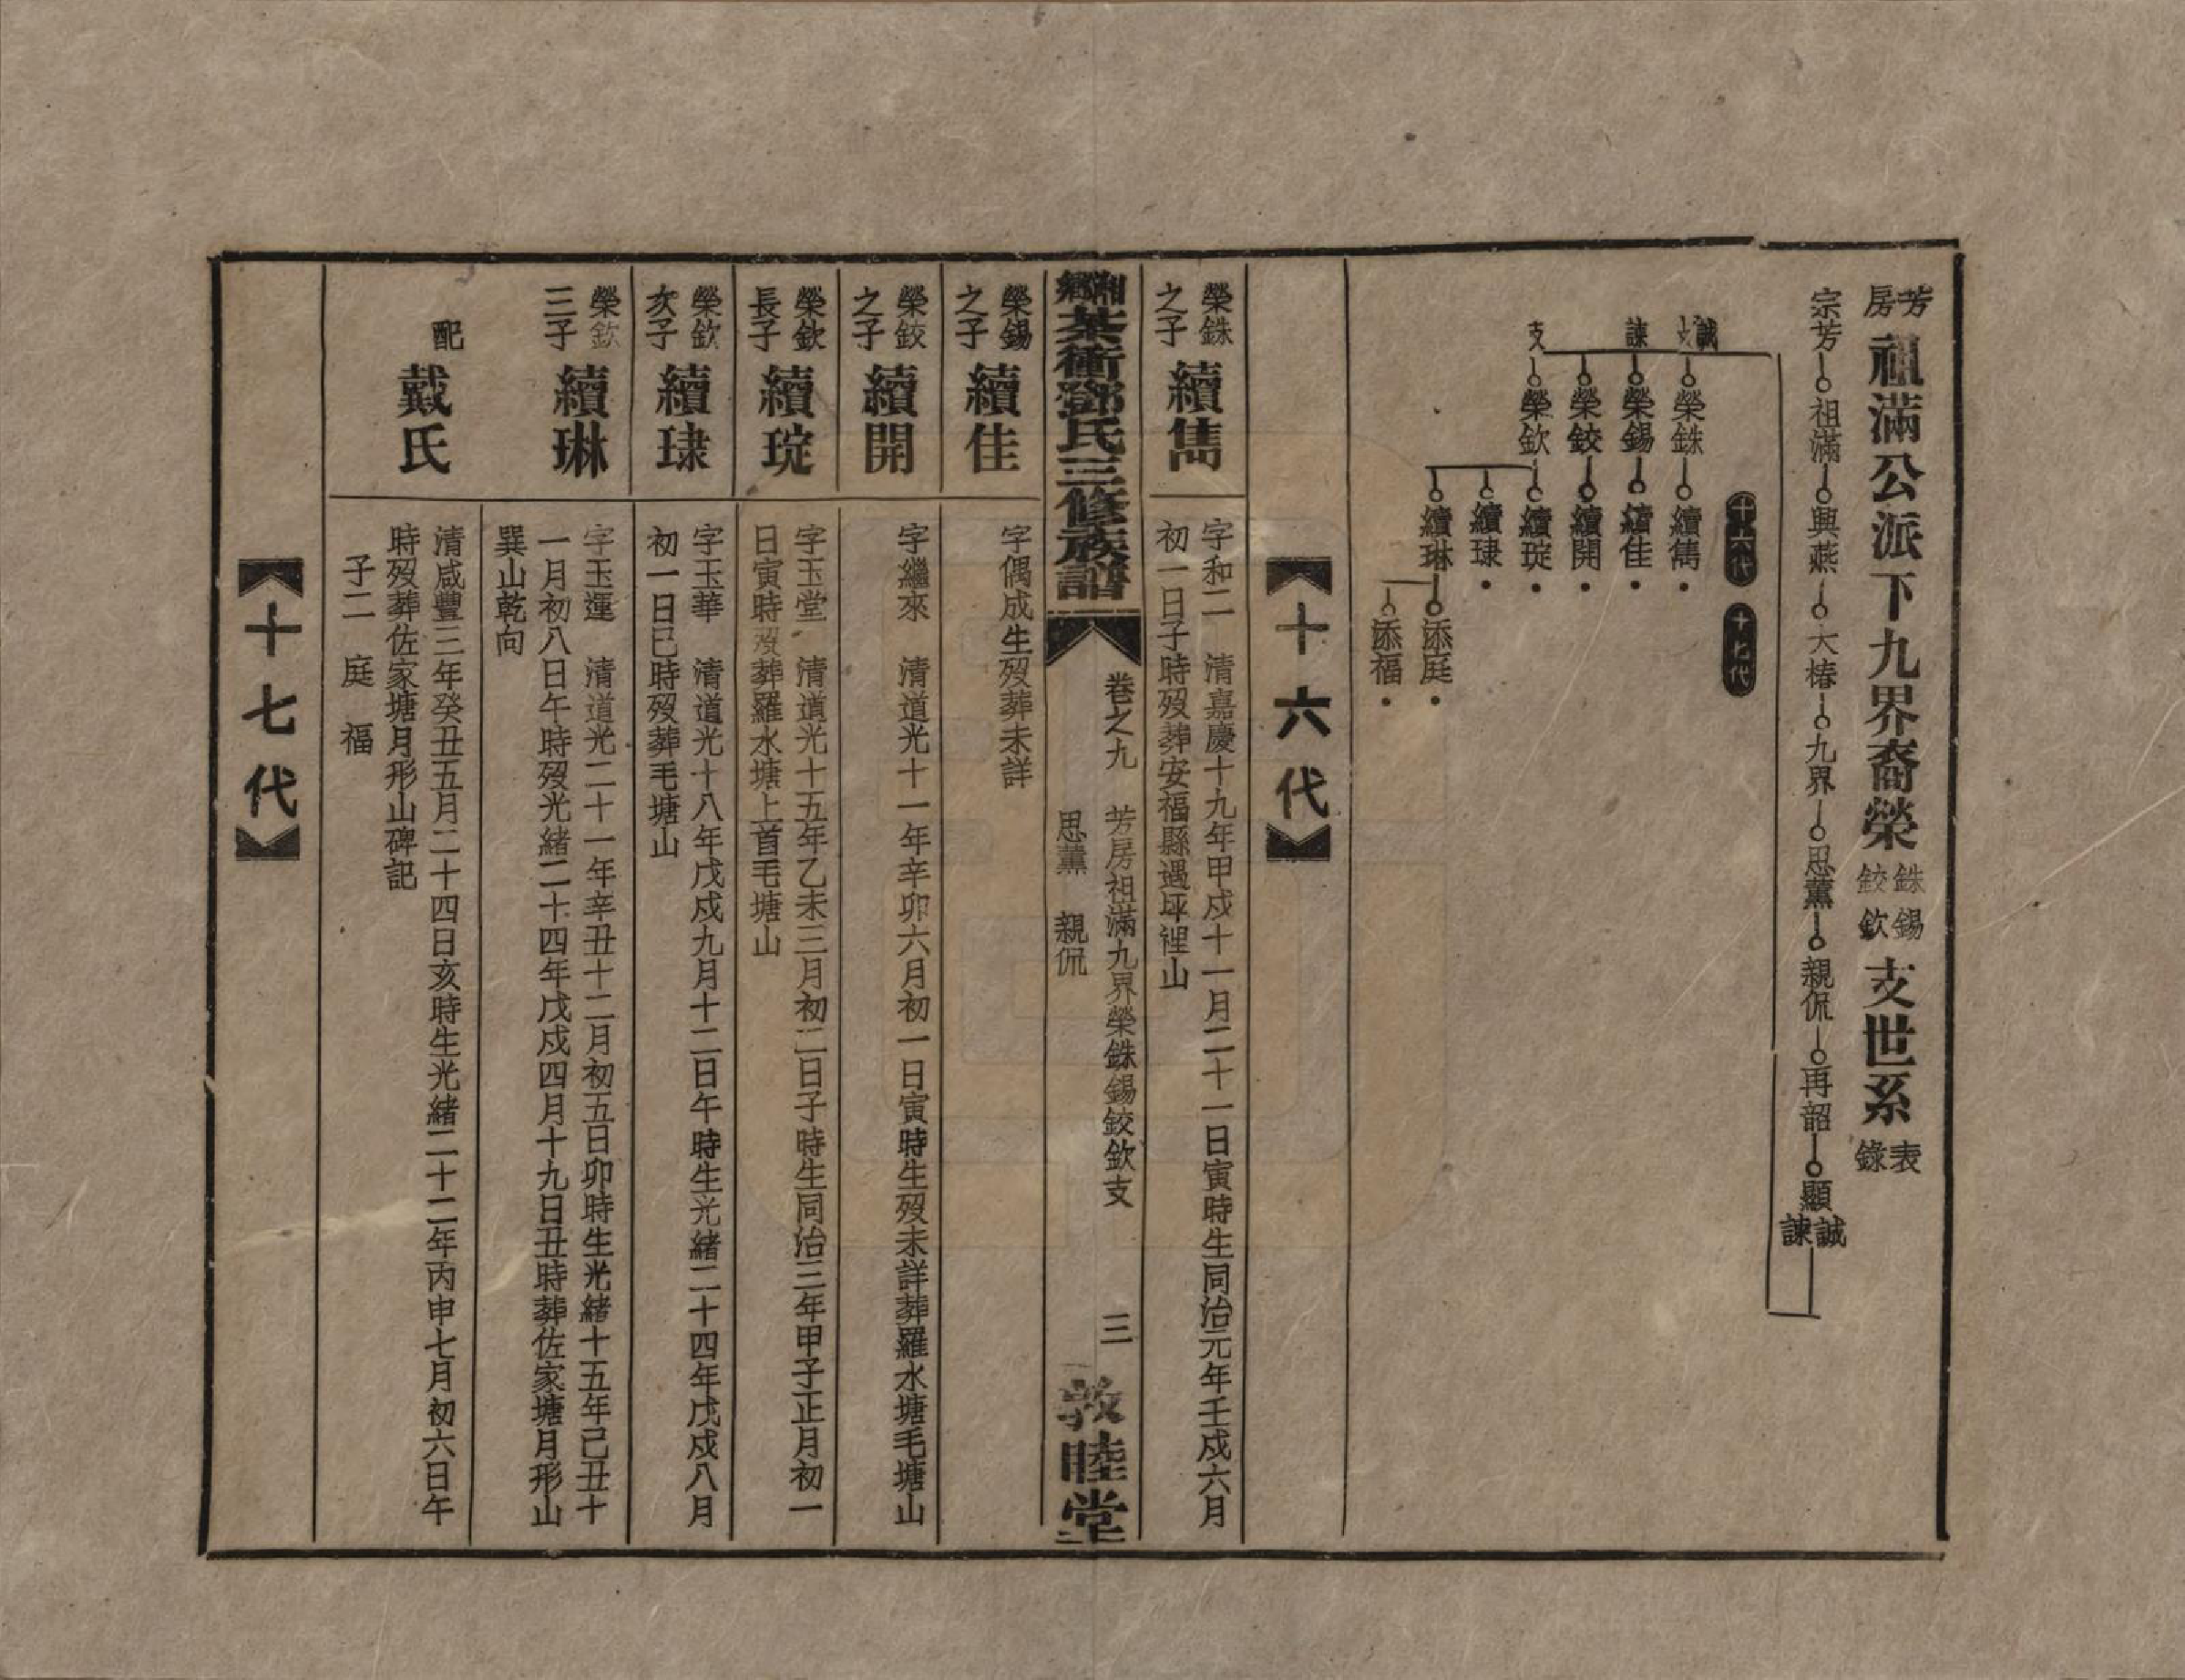 芳房 祖滿公派下九界裔榮銖錫鉸欽支世系表錄
宗芳 祖滿 興燕 大椿 九界 思薰 親侃 再韶 顯誠諫
十六代 十七代
誠支 榮銖 續雋
諫 榮錫 續佳
榮鉸 續開
支 榮欽 續琔
續琭
續琳 添庭
添福
十六代
榮銖之子 續雋
字和二 清嘉慶十九年甲戌十一月二十一日寅時生同治元年壬戌六月
初一日子時歿葬安福縣遇坪裡山
湘鄉茶衝鄧氏三修族譜
卷之九 芳房祖滿九界榮銖錫鉸欽支
思薰 親侃
三
敦睦堂
榮錫之子 續佳
字偶成生歿葬未詳
榮鉸之子 續開
字繼來 清道光十一年辛卯六月初一日寅時生歿未詳葬羅水塘毛塘山
榮欽長子 續琔
字玉堂 清道光十五年乙未三月初二日子時生同治三年甲子正月初一
日寅時歿葬羅水塘上首毛塘山
榮欽次子 續琭
字玉華 清道光十八年戊戌九月十二日午時生光緒二十四年戊戌八月
初一日巳時歿葬毛塘山
榮欽三子 續琳
字玉運 清道光二十一年辛丑十二月初五日卯時生光緒十五年己丑十
一月初八日午時歿光緒二十四年戊戌四月十九日丑時葬佐家塘月形山
巽山乾向
配 戴氏
清咸豐三年癸丑五月二十四日亥時生光緒二十二年丙申七月初六日午
時歿葬佐家塘月形山碑記
子二 庭 福
十七代